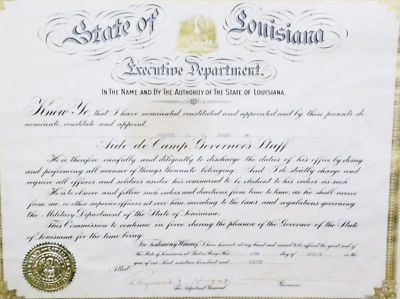 State of Louisiana
Executive Department.
IN THE NAME AND BY THE AUTHORITY OF THE STATE OF LOUISIANA.
Know Ye that I have nominated, constituted and appointed and by these presents do
nominate, constitute and appoint,
Aide de Camp Governor's Staff
He is therefore carefully and diligently to discharge the duties of his office by doing
and performing all manner of things thereunto belonging. And I do strictly charge and
require all officers and soldiers under his command to be obedient to his orders as such.
He is to observe and follow such orders and directions from time to time, as he shall receive
from me, or other superior officers set over him, according to the laws and regulations governing
the Military Department of the State of Louisiana.
This Commission to continue in force during the pleasure of the Governor of the State
of Louisiana for the time being.
In Testimony Whereof, I have hereunto set my hand and caused to be affixed the great seal of
the State of Louisiana, at Baton Rouge, this day of in the
year of our Lord, nineteen hundred and
Attest
The Adjutant General Governor